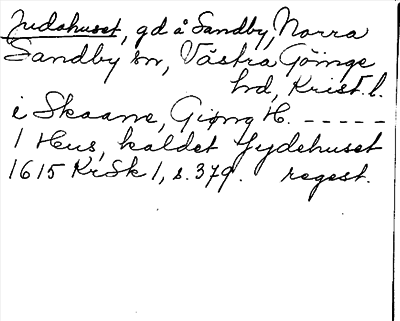 Judahuset, gd å Sandby, Norra
Sandby sn, Västra Göinge
hd, Krist. l.
i Skaane, Giøng H. -----
1 Hus, kaldet Jydehuset
1615 KrSk 1, s. 379. regest.